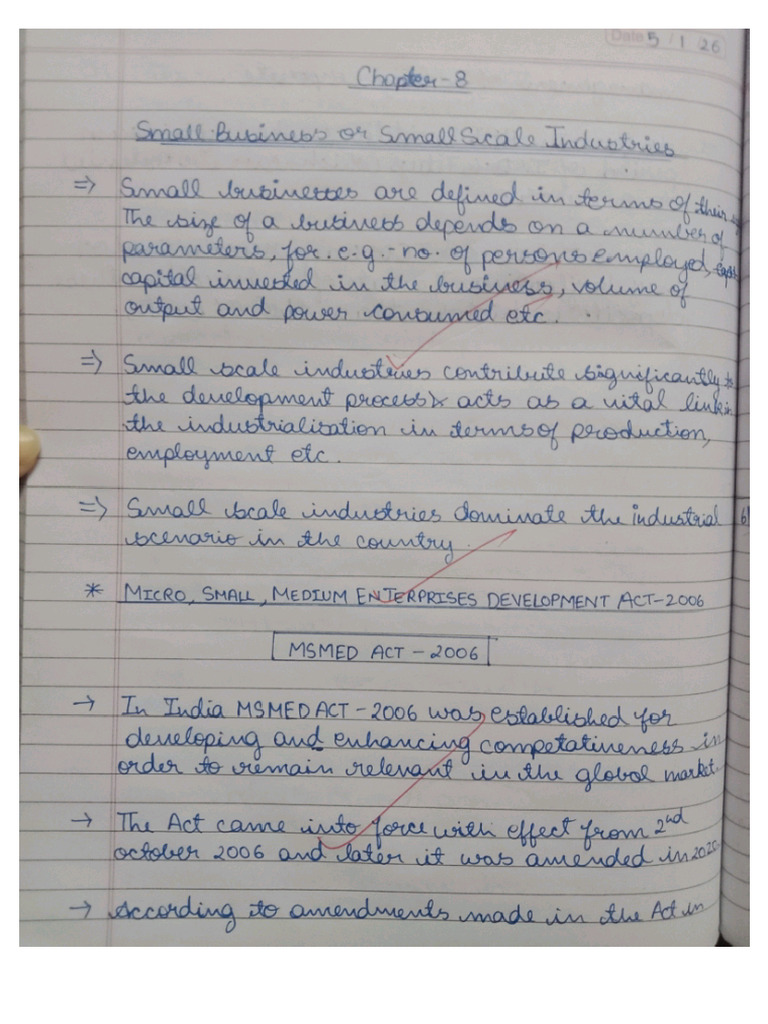 Date 5/1/26
Chapter-8
Small Business or Small Scale Industries
=> Small businesses are defined in terms of their
The size of a business depends on a number of
parameters, for. e.g.- no. of persons employed,
capital invested in the business, volume of
output and power consumed etc.
=> Small scale industries contribute significantly to
the development process & acts as a vital link in
the industrialisation in terms of production,
employment etc.
=> Small scale industries dominate the industrial
scenario in the country.
* MICRO, SMALL, MEDIUM ENTERPRISES DEVELOPMENT ACT-2006
MSMED ACT - 2006
→ In India MSMED ACT - 2006 was established for
developing and enhancing competativeness in
order to remain relevant in the global market.
→ The Act came into force with effect from 2nd
october 2006 and later it was amended in 2020.
→ According to amendments made in the Act in